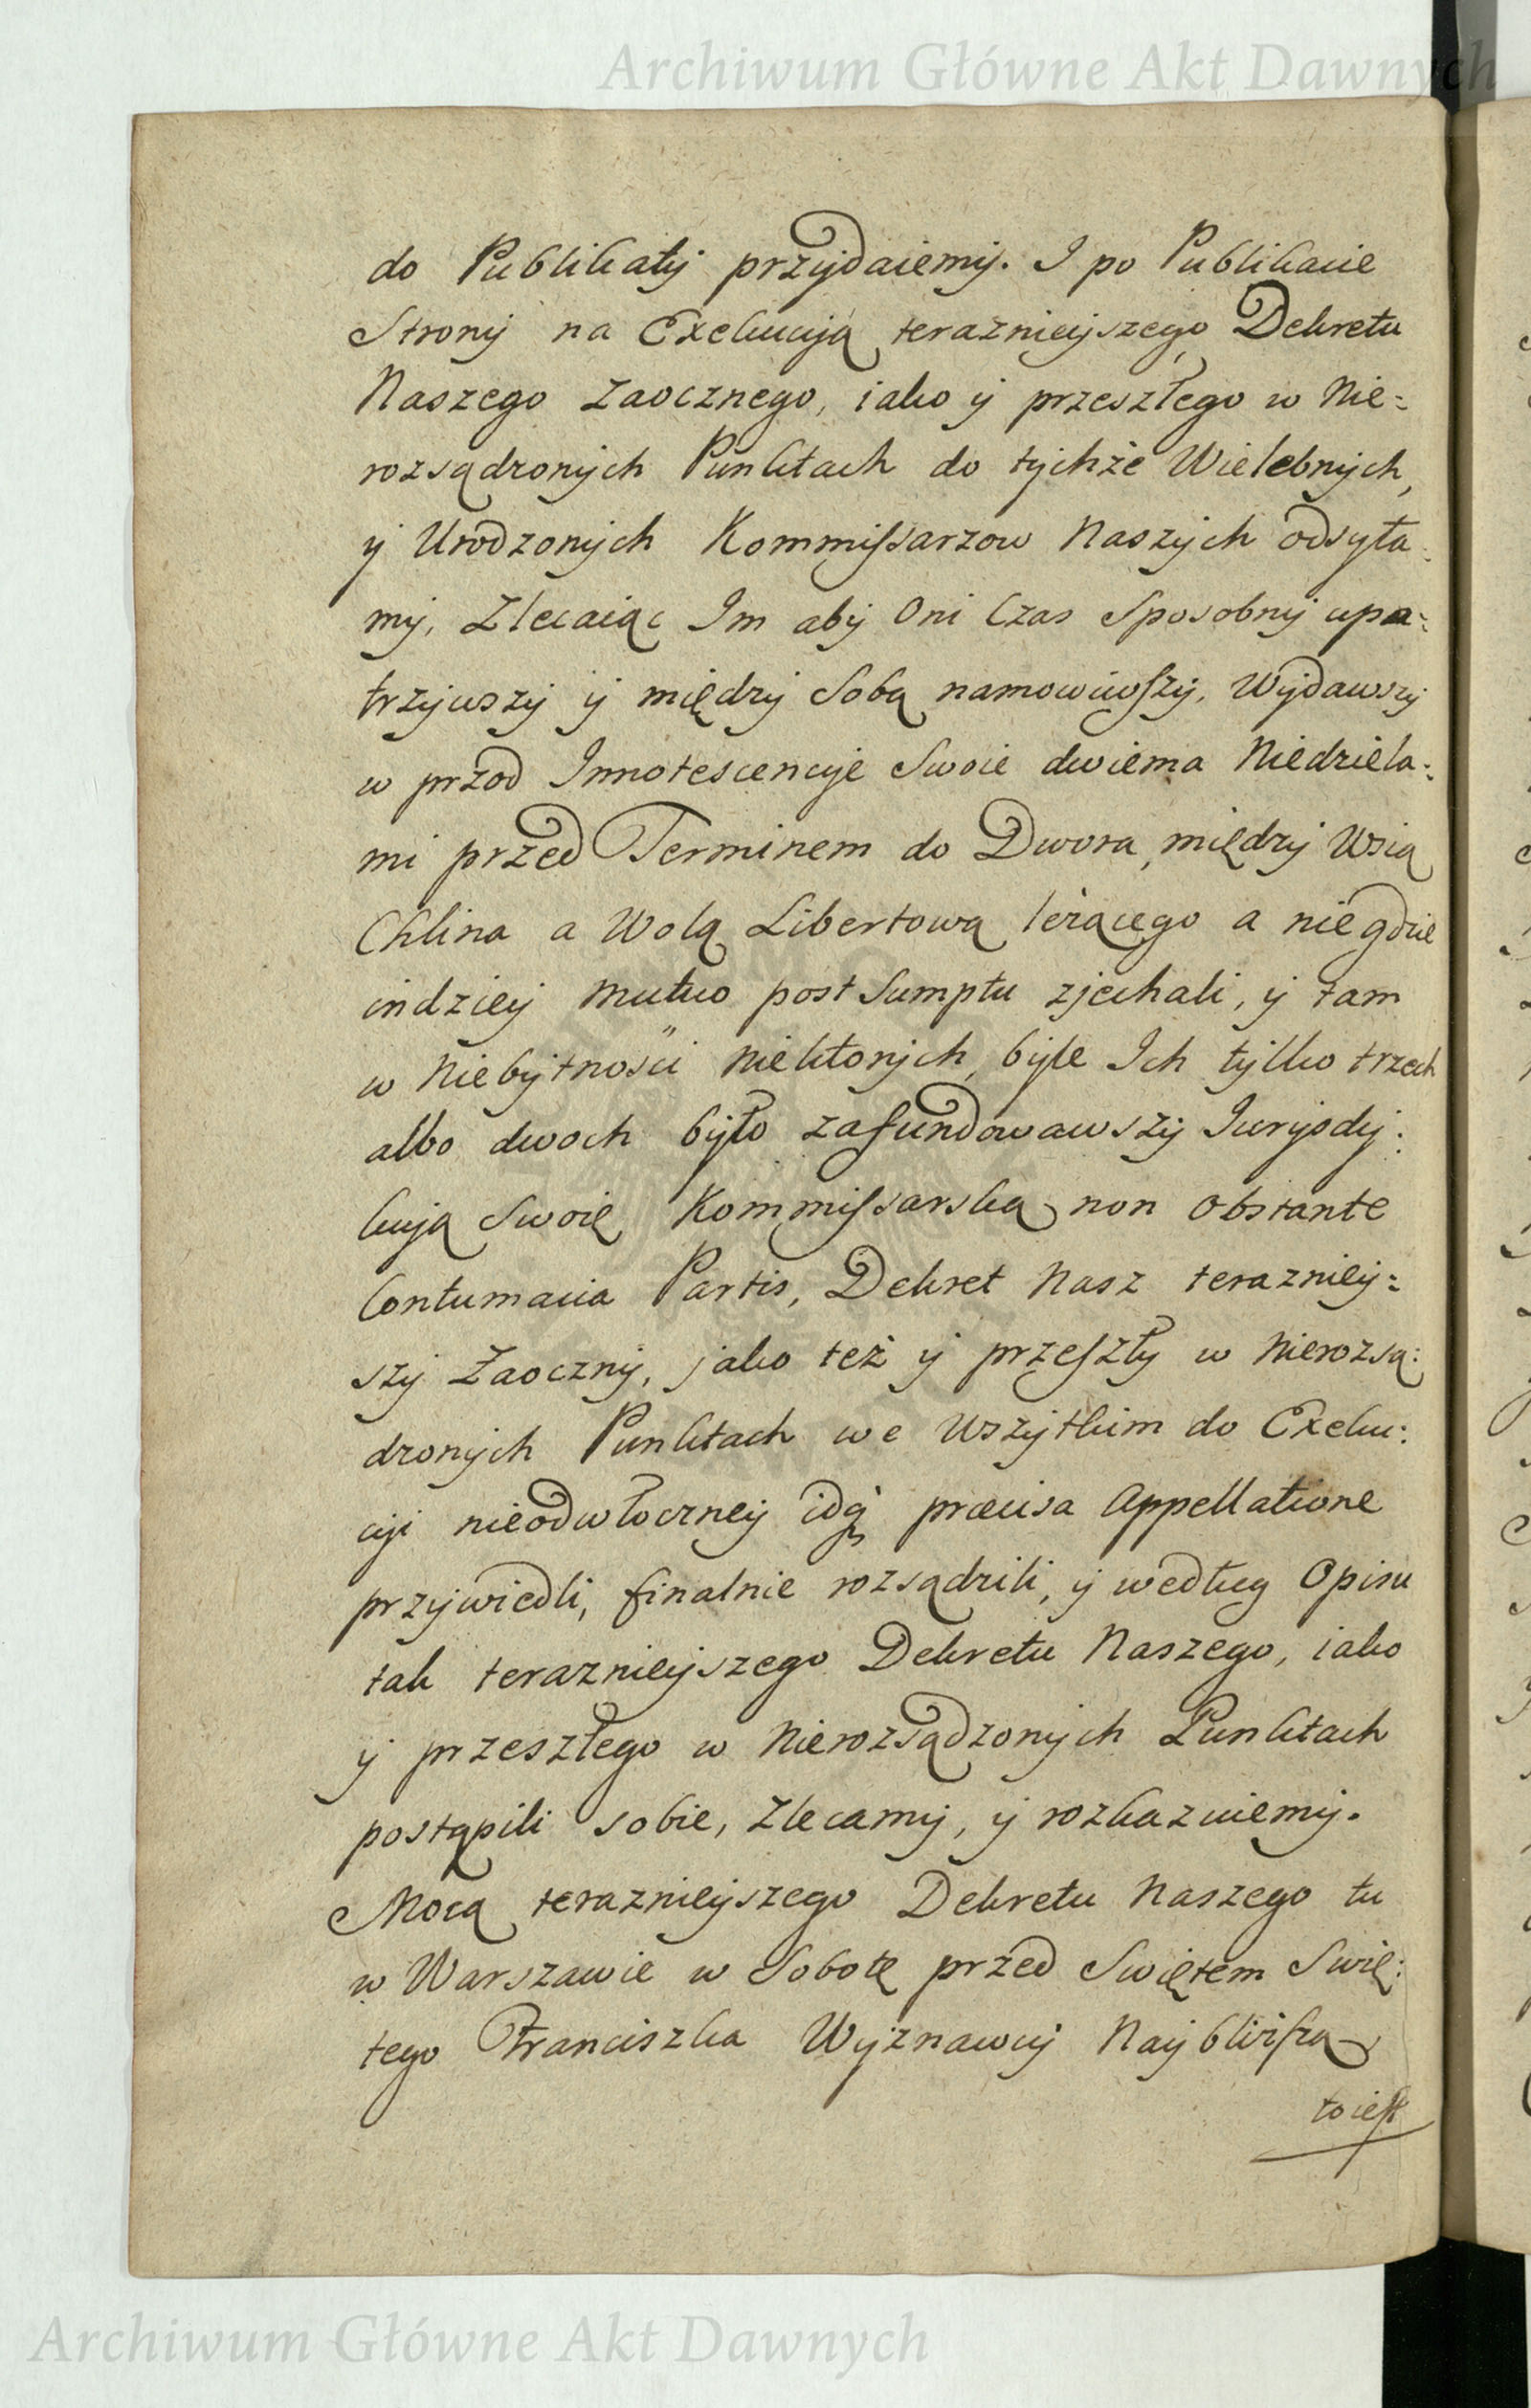 Archiwum Główne Akt Dawnych
do Publikaty przydaiemy. I po Publikacie
Strony na Exekucyją terazniejszego Dekretu
Naszego Zaocznego, iako y przeszłego w Nie=
rozsądzonych Punktach do tychże Wielebnych,
y Urodzonych Kommissarzow Naszych odsyła:
my, Zlecaiąc Im aby Oni Czas Sposobny upa=
trzywszy y między Sobą namowiwszy, Wydawszy
w przod Innotescencye Swoie dwiema Niedziela:
mi przed Terminem do Dwora, między Wsią
Chlina a Wolą Libertową leżącego a nie gdzie
indziey mutuo post Sumptu zjechali, y tam
w Niebytności Niektorych, byle Ich tylko trzech
albo dwoch było zafundowawszy Jurysdy:
kcyją Swoię Kommissarską non obstante
Contumacia Partis, Dekret Nasz terazniey=
szy Zaoczny, jako też y przeszły w Nierozsą:
dzonych Punktach we Wszytkim do Exeku:
cyi nieodwłoczney idą praecisa Appellatione
przywiedli, finalnie rozsądzili, y według Opisu
tak terazniejszego Dekretu Naszego, iako
y przeszłego w Nierozsądzonych Punktach
postąpili sobie, Zlecamy, y rozkazuiemy.
Mocą terazniejszego Dekretu Naszego tu
w Warszawie w Sobotę przed Swiętem Swię:
tego Franciszka Wyznawcy Naybliższą
to iest
Archiwum Główne Akt Dawnych